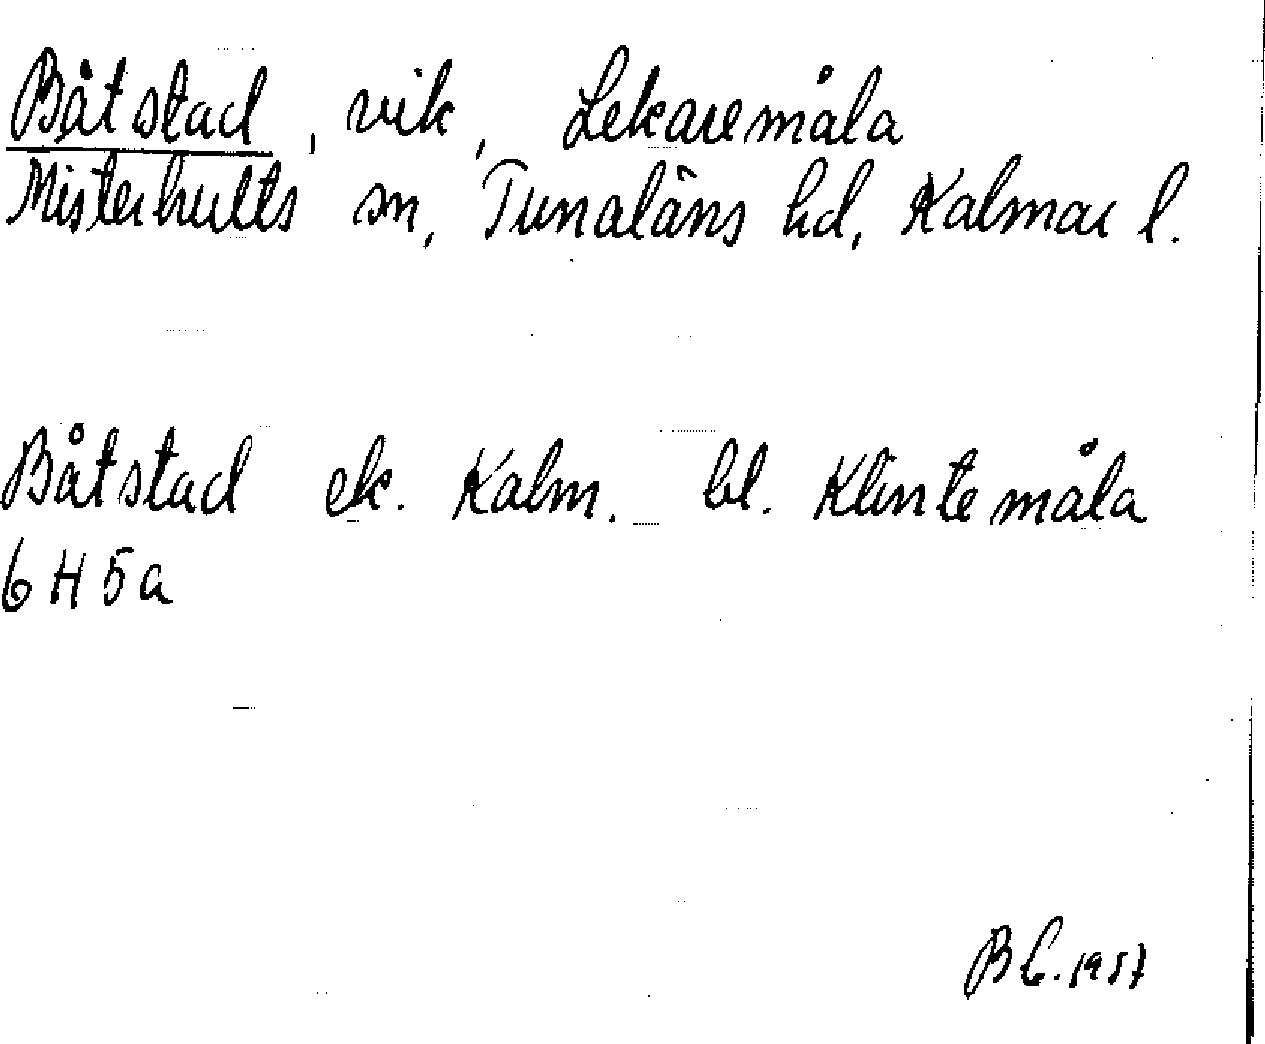 Båtstad, vik, Lekaremåla
Misterhults sn, Tunaläns hd, Kalmar l.
Båtstad ek. Kalm. bl. Klintemåla
6 H 5a
B C. 1957